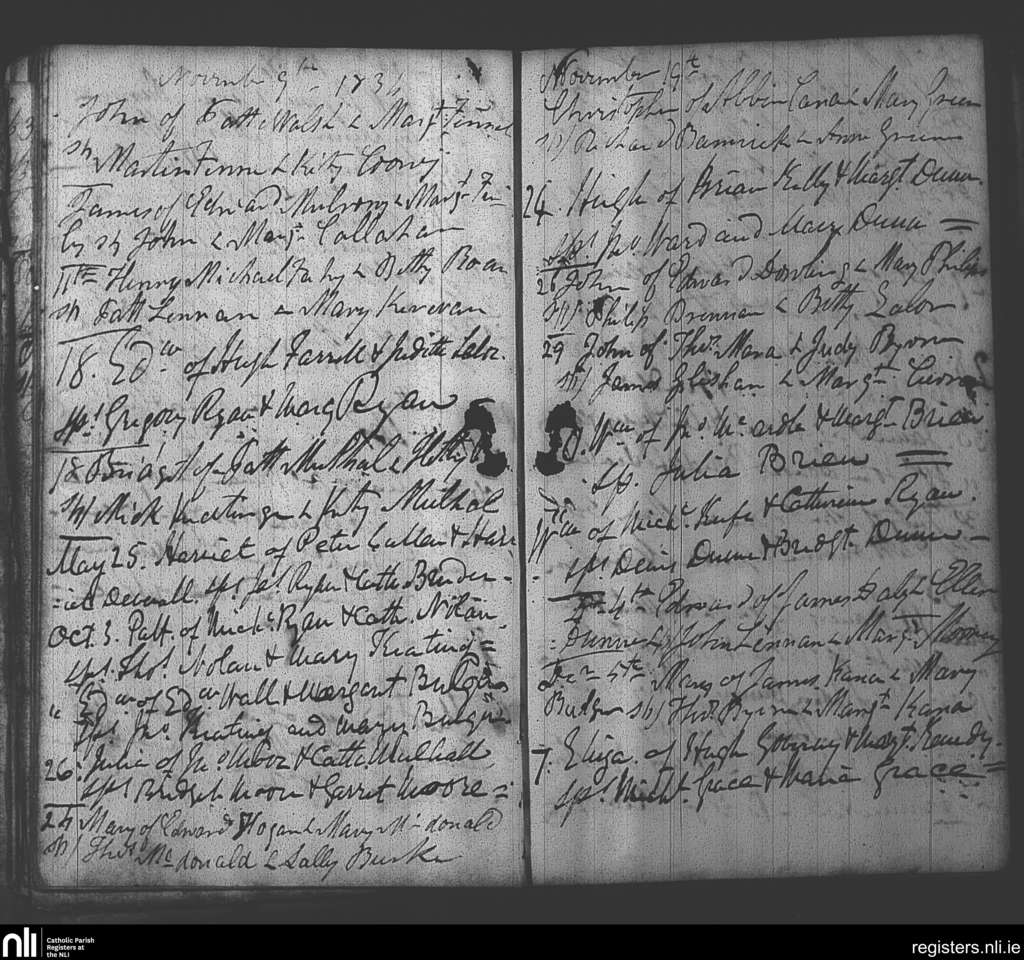 Novemb 9th 1831
John of Patt Walsh & Margt Finnel
Sps Martin Finn & Kitty Coony
James of Edward Mulrony & Margt Fin-
by sps John & Margt Callahan
11th Henry Michael Fahy & Betty Roan
sps Patt Lennan & Mary Kervean
18. Edwd of Hugh Farrell & Judith Lalor.
sps Gregory Ryan & Marg Ryan
18 Bridgt of Patt Mulhal & Kitty
sps Mick Keating & Kitty Mulhal
May 25. Harriet of Peter Cullen & Harr
=iet sps Jas Ryan & Cath Brider-
Oct 3. Patt. of Michl Ryan & Cath. Nolan.
sps. Thos Nolan & Mary Keating =
" Edwd of Edwd Wall & Margart Budger
sps Jno Keating and Mary Budger
26. Julia of Jno Moor & Cath Mulhall
sps Bridget Moore & Garret Moore =
24 Mary of Edward Hogan & Mary McDonald
sps Thos McDonald & Sally Burke
November 19th
Christopher of Cana & Mary Green
sps Richard & Ann Green
24. Hugh of Brian Kelly & Margt. Dunn.
sps Jno Ward and Mary Dunn =
26 John of Edward Dowling & Mary Philips
sps Philip Brennan & Betty Lalor
29 John of Thos Mara & Judy Byrne
sps James & Margt
Wm of Jno McArdle & Margt Brien
sp. Julia Brien =
Wm of Michl Keefe & Catherine Ryan.
sps Denis Dunn & Bridgt. Dunn -
4th Edward of James Dalph Ellen
= Dunne sps John Lennan & Margt Mooney
Decr 5th Mary of James Kana & Mary
Budger sps Thos Byrne & Margt Kana
7. Eliza. of Hugh & Margt. Kennedy.
sps Michl. Grace & Maria Grace =
nli
Catholic Parish
Registers at
the NLI
registers.nli.ie